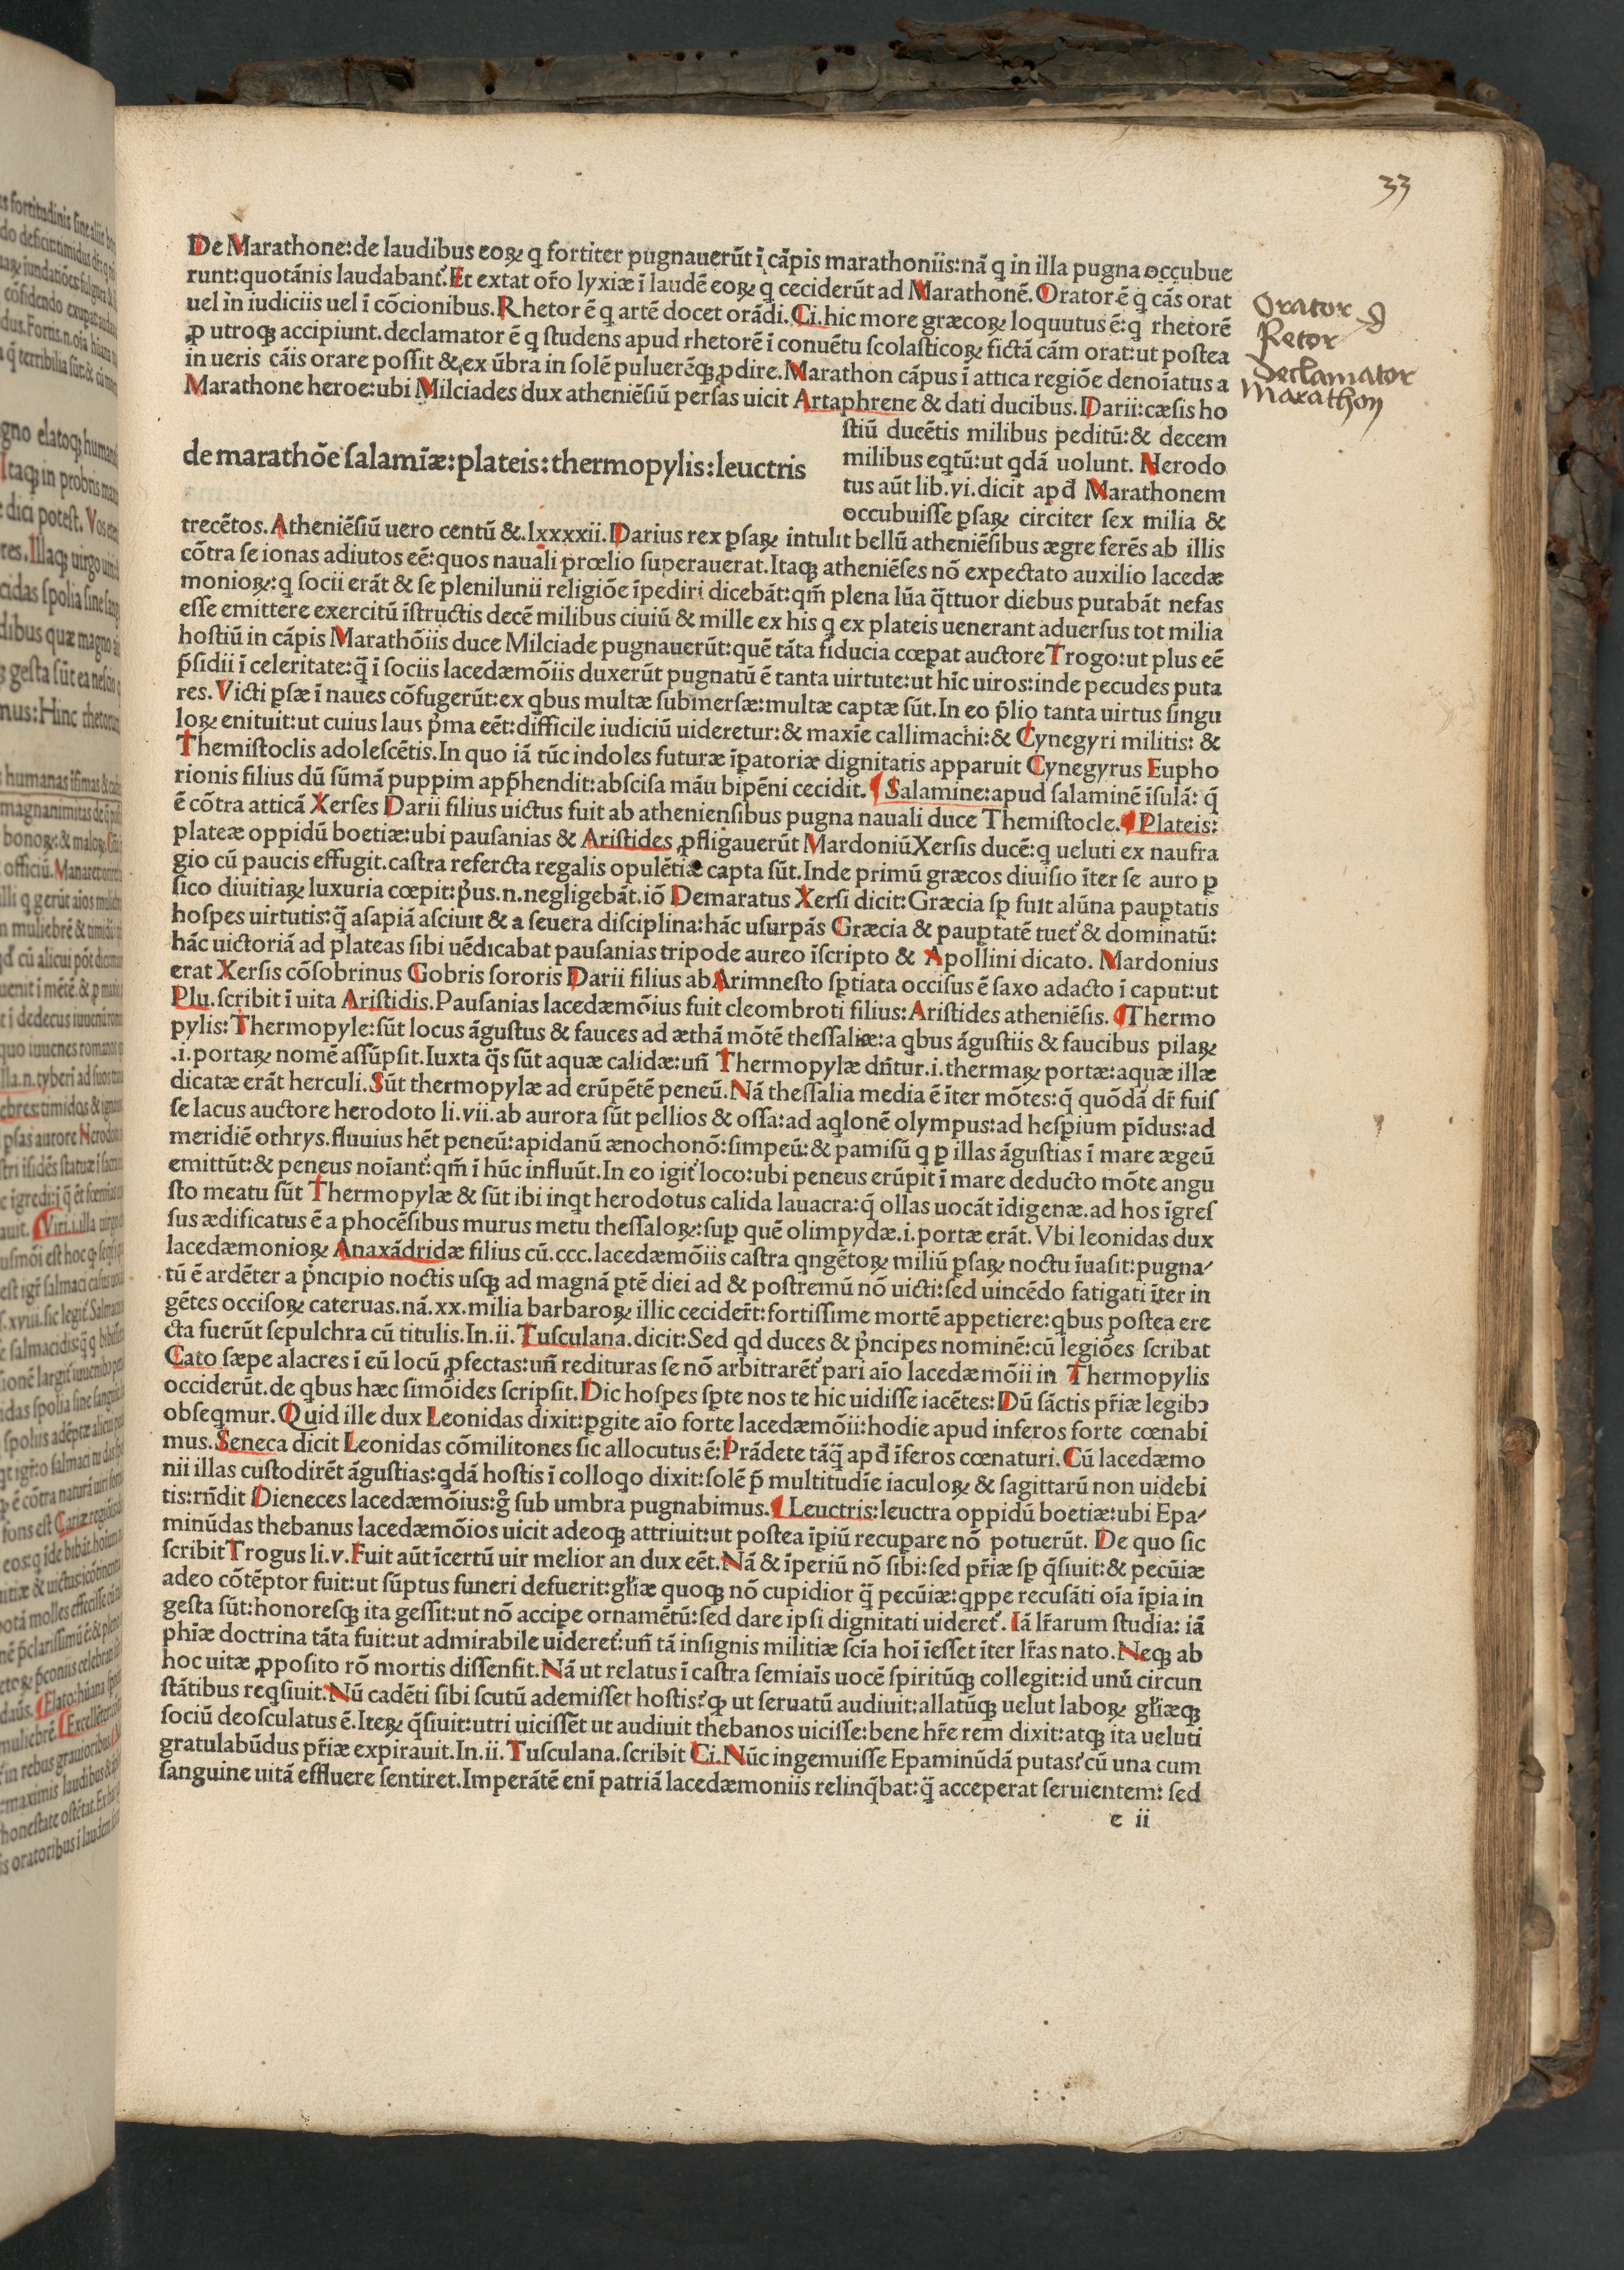 33
De Marathone:de laudibus eoꝝ q fortiter pugnauerūt ī cāpis marathoniis:nā q in illa pugna occubue
runt:quotānis laudabant᷑.Et extat or̄o lyxiæ ī laudē eoꝝ q ceciderūt ad Marathonē.Orator ē q cās orat
uel in iudiciis uel ī cōcionibus.Rhetor ē q artē docet orādi.Ci.hic more græcoꝝ loquutus ē:q̄ rhetorē
ꝓ utroqꝫ accipiunt.declamator ē q studens apud rhetorē ī conuētu scolasticoꝝ fictā cām orat:ut postea
in ueris cāis orare possit & ex ūbra in solē puluerēqꝫ ꝓdire.Marathon cāpus ī attica regiōe denoīatus a
Marathone heroe:ubi Milciades dux atheniēsiū persas uicit Artaphrene & dati ducibus.Darii:cæsis ho
stiū ducētis milibus peditū:& decem
milibus eqtū:ut qdā uolunt. Herodo
tus aūt lib.vi.dicit apđ Marathonem
occubuisse ꝑsaꝝ circiter sex milia &
de marathōe salamīæ:plateis:thermopylis:leuctris
trecētos.Atheniēsiū uero centū &.lxxxxii.Darius rex ꝑsaꝝ intulit bellū atheniēsibus ægre ferēs ab illis
cōtra se ionas adiutos eē:quos nauali prœlio superauerat.Itaqꝫ atheniēses nō expectato auxilio lacedæ
monioꝝ:q socii erāt & se plenilunii religiōe īpediri dicebāt:qm̄ plena lūa q̄ttuor diebus putabāt nefas
esse emittere exercitū īstructis decē milibus ciuiū & mille ex his q ex plateis uenerant aduersus tot milia
hostiū in cāpis Marathōiis duce Milciade pugnauerūt:quē tāta fiducia cœpat auctore Trogo:ut plus eē
p̄sidii ī celeritate:q̄ ī sociis lacedæmōiis duxerūt pugnatū ē tanta uirtute:ut hīc uiros:inde pecudes puta
res.Victi ꝑsæ ī naues cōfugerūt:ex qbus multæ submersæ:multæ captæ sūt.In eo p̄lio tanta uirtus singu
loꝝ enituit:ut cuius laus p̄ma eēt:difficile iudiciū uideretur:& maxīe callimachi:& Cynegyri militis: &
Themistoclis adolescētis.In quo iā tūc indoles futuræ īpatoriæ dignitatis apparuit Cynegyrus Eupho
rionis filius dū sūmā puppim app̄hendit:abscisa māu bipēni cecidit.¶Salamine:apud salaminē īsulā: q̄
ē cōtra atticā Xerses Darii filius uictus fuit ab atheniensibus pugna nauali duce Themistocle.¶Plateis:
plateæ oppidū boetiæ:ubi pausanias & Aristides ꝓfligauerūt Mardoniū Xersis ducē:q ueluti ex naufra
gio cū paucis effugit.castra referčta regalis opulētiæ capta sūt.Inde primū græcos diuisio īter se auro ꝑ
sico diuitiaꝝ luxuria cœpit:p̄us.n.negligebāt.iō Demaratus Xersi dicit:Græcia sꝑ fuit alūna pauꝑtatis
hospes uirtutis:q̄ asapiā asciuit & a seuera disciplina:hāc usurpās Græcia & pauꝑtatē tuet᷑ & dominatū:
hāc uictoriā ad plateas sibi uēdicabat pausanias tripode aureo īscripto & Apollini dicato. Mardonius
erat Xersis cōsobrinus Gobris sororis Darii filius ab Arimnesto sꝑtiata occisus ē saxo adacto ī caput:ut
Plu.scribit ī uita Aristidis.Pausanias lacedæmōius fuit cleombroti filius:Aristides atheniēsis.¶Thermo
pylis:Thermopyle:sūt locus āgustus & fauces ad æthā mōtē thessaliæ:a qbus āgustiis & faucibus pilaꝝ
.i.portaꝝ nomē assūpsit.Iuxta q̄s sūt aquæ calidæ:un̄ Thermopylæ dn̄tur.i.thermaꝝ portæ:aquæ illæ
dicatæ erāt herculi.Sūt thermopylæ ad erūpētē peneū.Nā thessalia media ē īter mōtes:q̄ quōdā dr̄ fuis
se lacus auctore herodoto li.vii.ab aurora sūt pellios & ossa:ad aqlonē olympus:ad hesꝑium pīdus:ad
meridiē othrys.fluuius hēt peneū:apidanū ænochonō:simpeū:& pamisū q ꝑ illas āgustias ī mare ægeū
emittūt:& peneus noīant᷑:qm̄ ī hūc influūt.In eo igit᷑ loco:ubi peneus erūpit ī mare deducto mōte angu
sto meatu sūt Thermopylæ & sūt ibi inqt herodotus calida lauacra:q̄ ollas uocāt īdigenæ.ad hos īgres
sus ædificatus ē a phocēsibus murus metu thessaloꝝ:suꝑ quē olimpydæ.i.portæ erāt.Vbi leonidas dux
lacedæmonioꝝ Anaxādridæ filius cū.ccc.lacedæmōiis castra qngētoꝝ miliū ꝑsaꝝ noctu īuasit:pugna⸗
tū ē ardēter a p̄ncipio noctis usqꝫ ad magnā ꝑtē diei ad & postremū nō uicti:sed uincēdo fatigati īter in
gētes occisoꝝ cateruas.nā.xx.milia barbaroꝝ illic cecider̄t:fortissime mortē appetiere:qbus postea ere
cta fuerūt sepulchra cū titulis.In.ii.Tusculana.dicit:Sed qd duces & p̄ncipes nominē:cū legiōes scribat
Cato sæpe alacres ī eū locū ꝓfectas:un̄ redituras se nō arbitrarēt᷑ pari aīo lacedæmōii in Thermopylis
occiderūt.de qbus hæc simōides scripsit.Dic hospes sꝑte nos te hic uidisse iacētes:Dū sāctis pr̄iæ legibꝰ
obseqmur.Quid ille dux Leonidas dixit:ꝑgite aīo forte lacedæmōii:hodie apud inferos forte cœnabi
mus.Seneca dicit Leonidas cōmilitones sic allocutus ē:Prādete tāq̄ apđ īferos cœnaturi.Cū lacedæmo
nii illas custodirēt āgustias:qdā hostis ī colloqo dixit:solē p̄ multitudīe iaculoꝝ & sagittarū non uidebi
tis:rn̄dit Dieneces lacedæmōius:g̊ sub umbra pugnabimus.¶Leuctris:leuctra oppidū boetiæ:ubi Epa⸗
minūdas thebanus lacedæmōios uicit adeoqꝫ attriuit:ut postea īpiū recupare nō potuerūt. De quo sic
scribit Trogus li.v.Fuit aūt īcertū uir melior an dux eēt.Nā & īperiū nō sibi:sed pr̄iæ sꝑ q̄siuit:& pecūiæ
adeo cōtēptor fuit:ut sūptus funeri defuerit:gl̄iæ quoqꝫ nō cupidior q̄ pecūiæ:qppe recusāti oīa īpia in
gesta sūt:honoresqꝫ ita gessit:ut nō accipe ornamētū:sed dare ipsi dignitati uideret᷑. Iā lr̄arum studia: iā
phiæ doctrina tāta fuit:ut admirabile uideret᷑:un̄ tā insignis militiæ scīa hoī īesset īter lr̄as nato.Neqꝫ ab
hoc uitæ ꝓposito rō mortis dissensit.Nā ut relatus ī castra semiaīs uocē spiritūqꝫ collegit:id unū circun
stātibus reqsiuit.Nū cadēti sibi scutū ademisset hostis?qꝫ ut seruatū audiuit:allatūqꝫ uelut laboꝝ gl̄iæqꝫ
sociū deosculatus ē.Iteꝝ q̄siuit:utri uicissēt ut audiuit thebanos uicisse:bene hr̄e rem dixit:atqꝫ ita ueluti
gratulabūdus pr̄iæ expirauit.In.ii.Tusculana.scribit Ci.Nūc ingemuisse Epaminūdā putas?cū una cum
sanguine uitā effluere sentiret.Imperātē enī patriā lacedæmoniis relinq̄bat:q̄ acceperat seruientem: sed
e ii
Orator
Retor
Declamator
Marathon